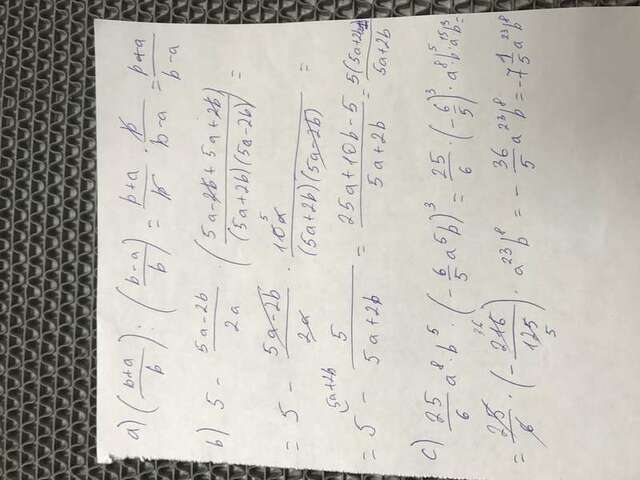 a) (b+a/b) : (b-a/b) = b+a/b · b/b-a = b+a/b-a
b) 5 - 5a-2b/2a · (5a-2b+5a+2b/(5a+2b)(5a-2b)) =
= 5 - 5a-2b/2a · 10a 5/(5a+2b)(5a-2b) =
= 5 5a+2b - 5/5a+2b = 25a+10b-5/5a+2b = 5(5a+2b/5a+2b
c) 25/6 a⁸·b⁵·(-6/5 a⁵b)³ = 25/6 · (-6/5)³ · a⁸b⁵·a¹⁵b³=
= 25/6 · (-216 36/125 5) · a²³b⁸ = - 36/5 a²³b⁸ = -7 1/5 a²³b⁸